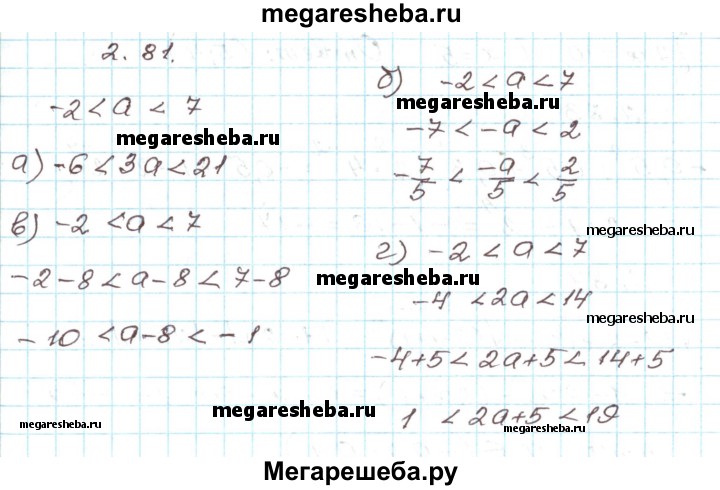 megaresheba.ru
2. 81.
-2 < a < 7
megaresheba.ru
а) -6 < 3a < 21
в) -2 < a < 7
-2-8 < a-8 < 7-8
megaresheba.ru
-10 < a-8 < -1
megaresheba.ru
б) -2 < a < 7
megaresheba.ru
-7 < -a < 2
-7/5 < -a/5 < 2/5
megaresheba.ru
г) -2 < a < 7
megaresheba.ru
-4 < 2a < 14
-4+5 < 2a+5 < 14+5
megaresheba.ru
1 < 2a+5 < 19
megaresheba.ru
Мегарешеба.ру